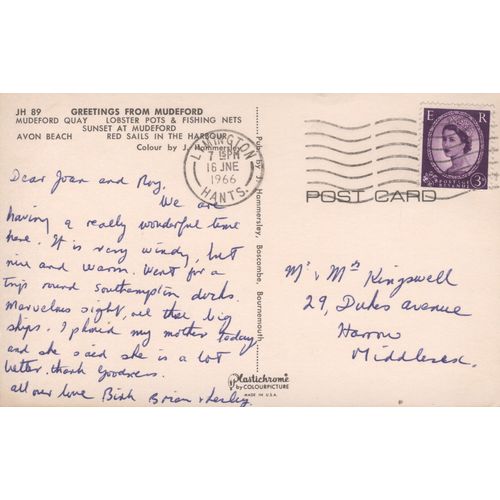 JH 89 GREETINGS FROM MUDEFORD
MUDEFORD QUAY LOBSTER POTS & FISHING NETS
SUNSET AT MUDEFORD
AVON BEACH RED SAILS IN THE HARBOUR
Colour by J. Hammersley
LYMINGTON
7 15 PM
16 JNE
1966
HANTS.
E R
POSTAGE REVENUE
3D
POST CARD
Dear Joan and Roy.
We are
having a really wonderful time
here. It is very windy, but
nice and warm. Went for a
trip round Southampton docks.
Marvelous sight, all the big
ships. I phoned my mother today,
and she said she is a lot
better. thank goodness.
all our love Brian & Lesley
Pub. by J. Hammersley, Boscombe, Bournemouth
Mr & Mrs Kingswell
29, Dukes avenue
Harrow
Middlesex.
Plastichrome
by COLOURPICTURE
MADE IN U.S.A.